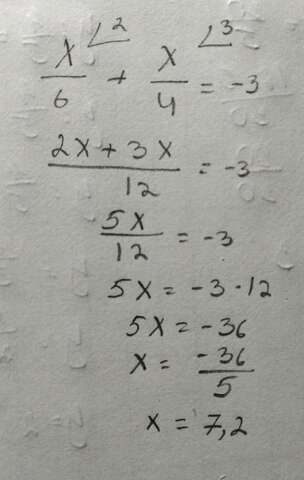 x/6 ∠2 + x/4 ∠3 = -3
2x + 3x / 12 = -3
5x/12 = -3
5x = -3 · 12
5x = -36
x = -36/5
x = 7,2